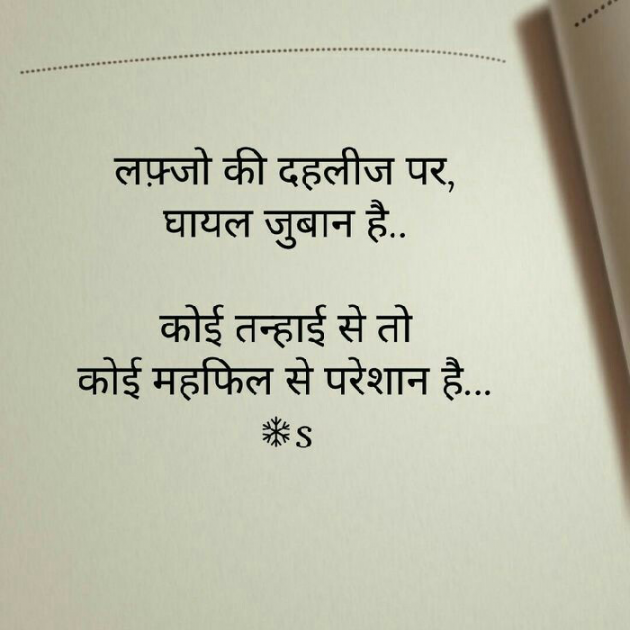 लफ़्जो की दहलीज पर,
घायल जुबान है..
कोई तन्हाई से तो
कोई महफिल से परेशान है...
❄s